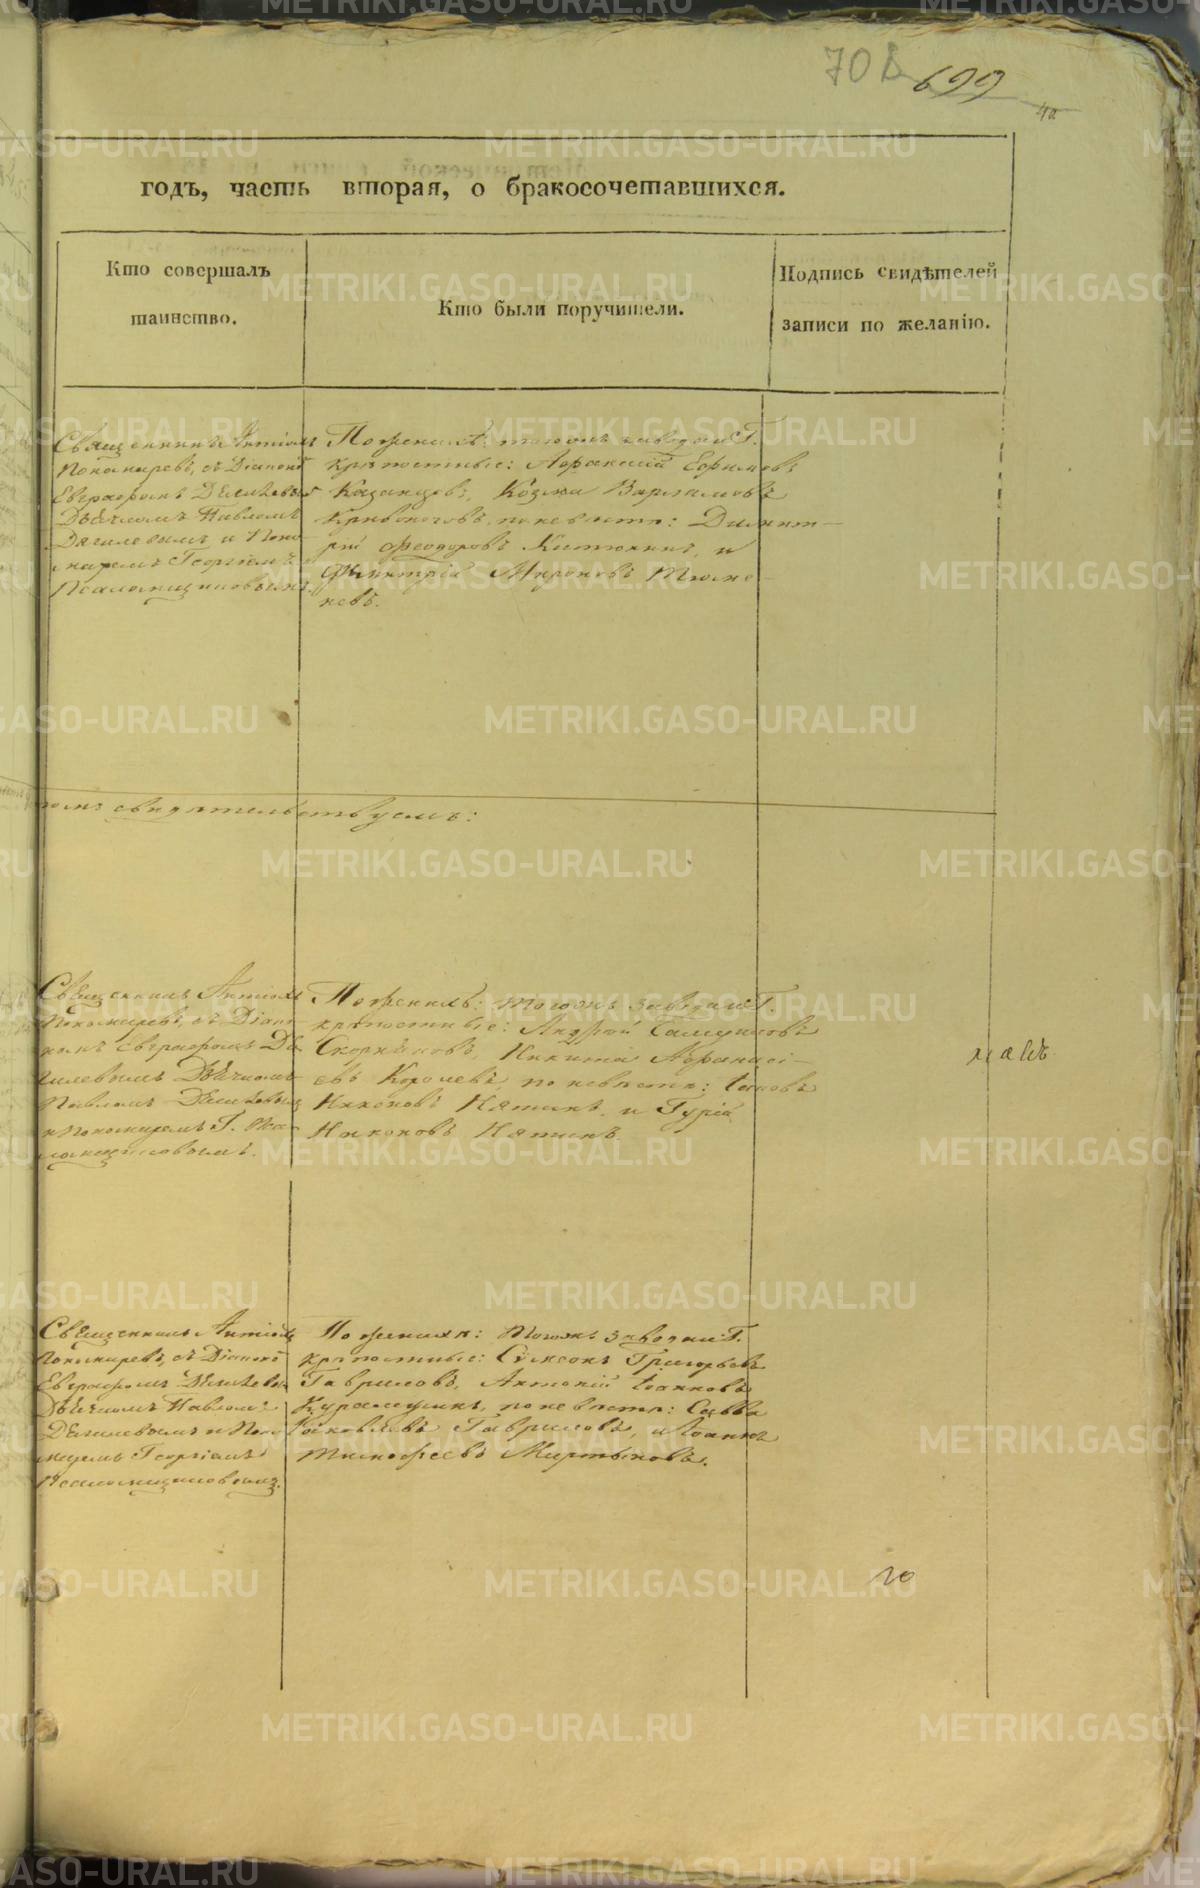 708 699
40
годъ, часть вторая, о бракосочетавшихся.
Кто совершалъ
таинство.
Кто были поручители.
Подпись свидѣтелей
записи по желанію.
Священникъ Антоній
Пономаревъ, съ Діакономъ
Евграфомъ
Дьячкомъ Павломъ
Дягилевымъ и Поно-
маремъ Георгіемъ
Псаломщиковымъ.
По женихѣ: тогожъ завода Г.
крѣпостные: Афанасій Ефимовъ
Казанцовъ, Козма Варламовъ
Кривоноговъ, по невѣстѣ: Димит-
рій Феодоровъ Китюкинъ, и
Димитрій Мироновъ Тюме-
невъ.
свидѣтельствуемъ:
Священникъ Антоній
Пономаревъ, съ Діако-
номъ Евграфомъ Дя-
гилевымъ Дьячкомъ
Павломъ
и Пономаремъ Г. Пса-
ломщиковымъ.
По женихѣ: тогожъ завода Г.
крѣпостные: Андрей Самуиловъ
Никита Афанасі-
евъ Королевъ, по невѣстѣ: Іаковъ
Никоновъ Пятинъ, и Гурій
Никоновъ Пятинъ
Священникъ Антоній
Пономаревъ, съ Діакономъ
Евграфомъ
Дьячкомъ Павломъ
Дягилевымъ и Поно-
маремъ Георгіемъ
Псаломщиковымъ.
По женихѣ: тогожъ завода Г.
крѣпостные: Симеонъ Григорьевъ
Гавриловъ, Антоній Іоанновъ
по невѣстѣ: Савва
Іаковлевъ Гавриловъ, и Іоаннъ
Тимофеевъ Мартыновъ.